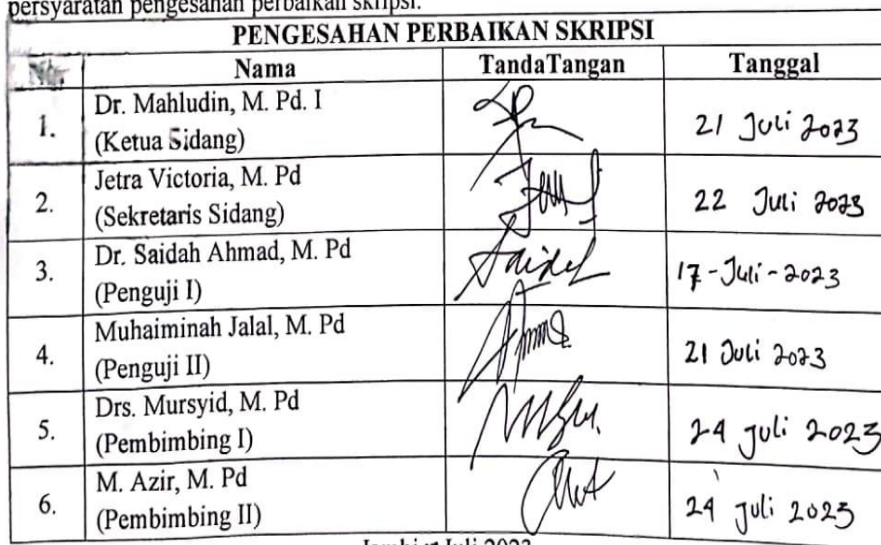 persyaratan pengesahan perbaikan skripsi.
PENGESAHAN PERBAIKAN SKRIPSI
No. Nama TandaTangan Tanggal
1. Dr. Mahludin, M. Pd. I
(Ketua Sidang) 21 Juli 2023
2. Jetra Victoria, M. Pd
(Sekretaris Sidang) 22 Juli 2023
3. Dr. Saidah Ahmad, M. Pd
(Penguji I) 17-Juli-2023
4. Muhaiminah Jalal, M. Pd
(Penguji II) 21 Juli 2023
5. Drs. Mursyid, M. Pd
(Pembimbing I) 24 Juli 2023
6. M. Azir, M. Pd
(Pembimbing II) 24 Juli 2023
Juli 2023